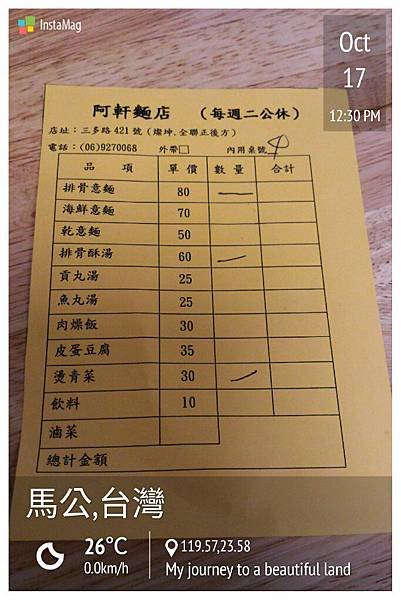 InstaMag
Oct
17
12:30 PM
阿軒麵店 (每週二公休)
店址：三多路421號(燦坤.全聯正後方)
電話：(06)9270068 外帶□ 內用桌號 4
品項 單價 數量 合計
排骨意麵 80 一
海鮮意麵 70
乾意麵 50
排骨酥湯 60 一
貢丸湯 25
魚丸湯 25
肉燥飯 30
皮蛋豆腐 35
燙青菜 30 一
飲料 10
滷菜
總計金額
馬公,台灣
26°C
0.0km/h
119.57,23.58
My journey to a beautiful land